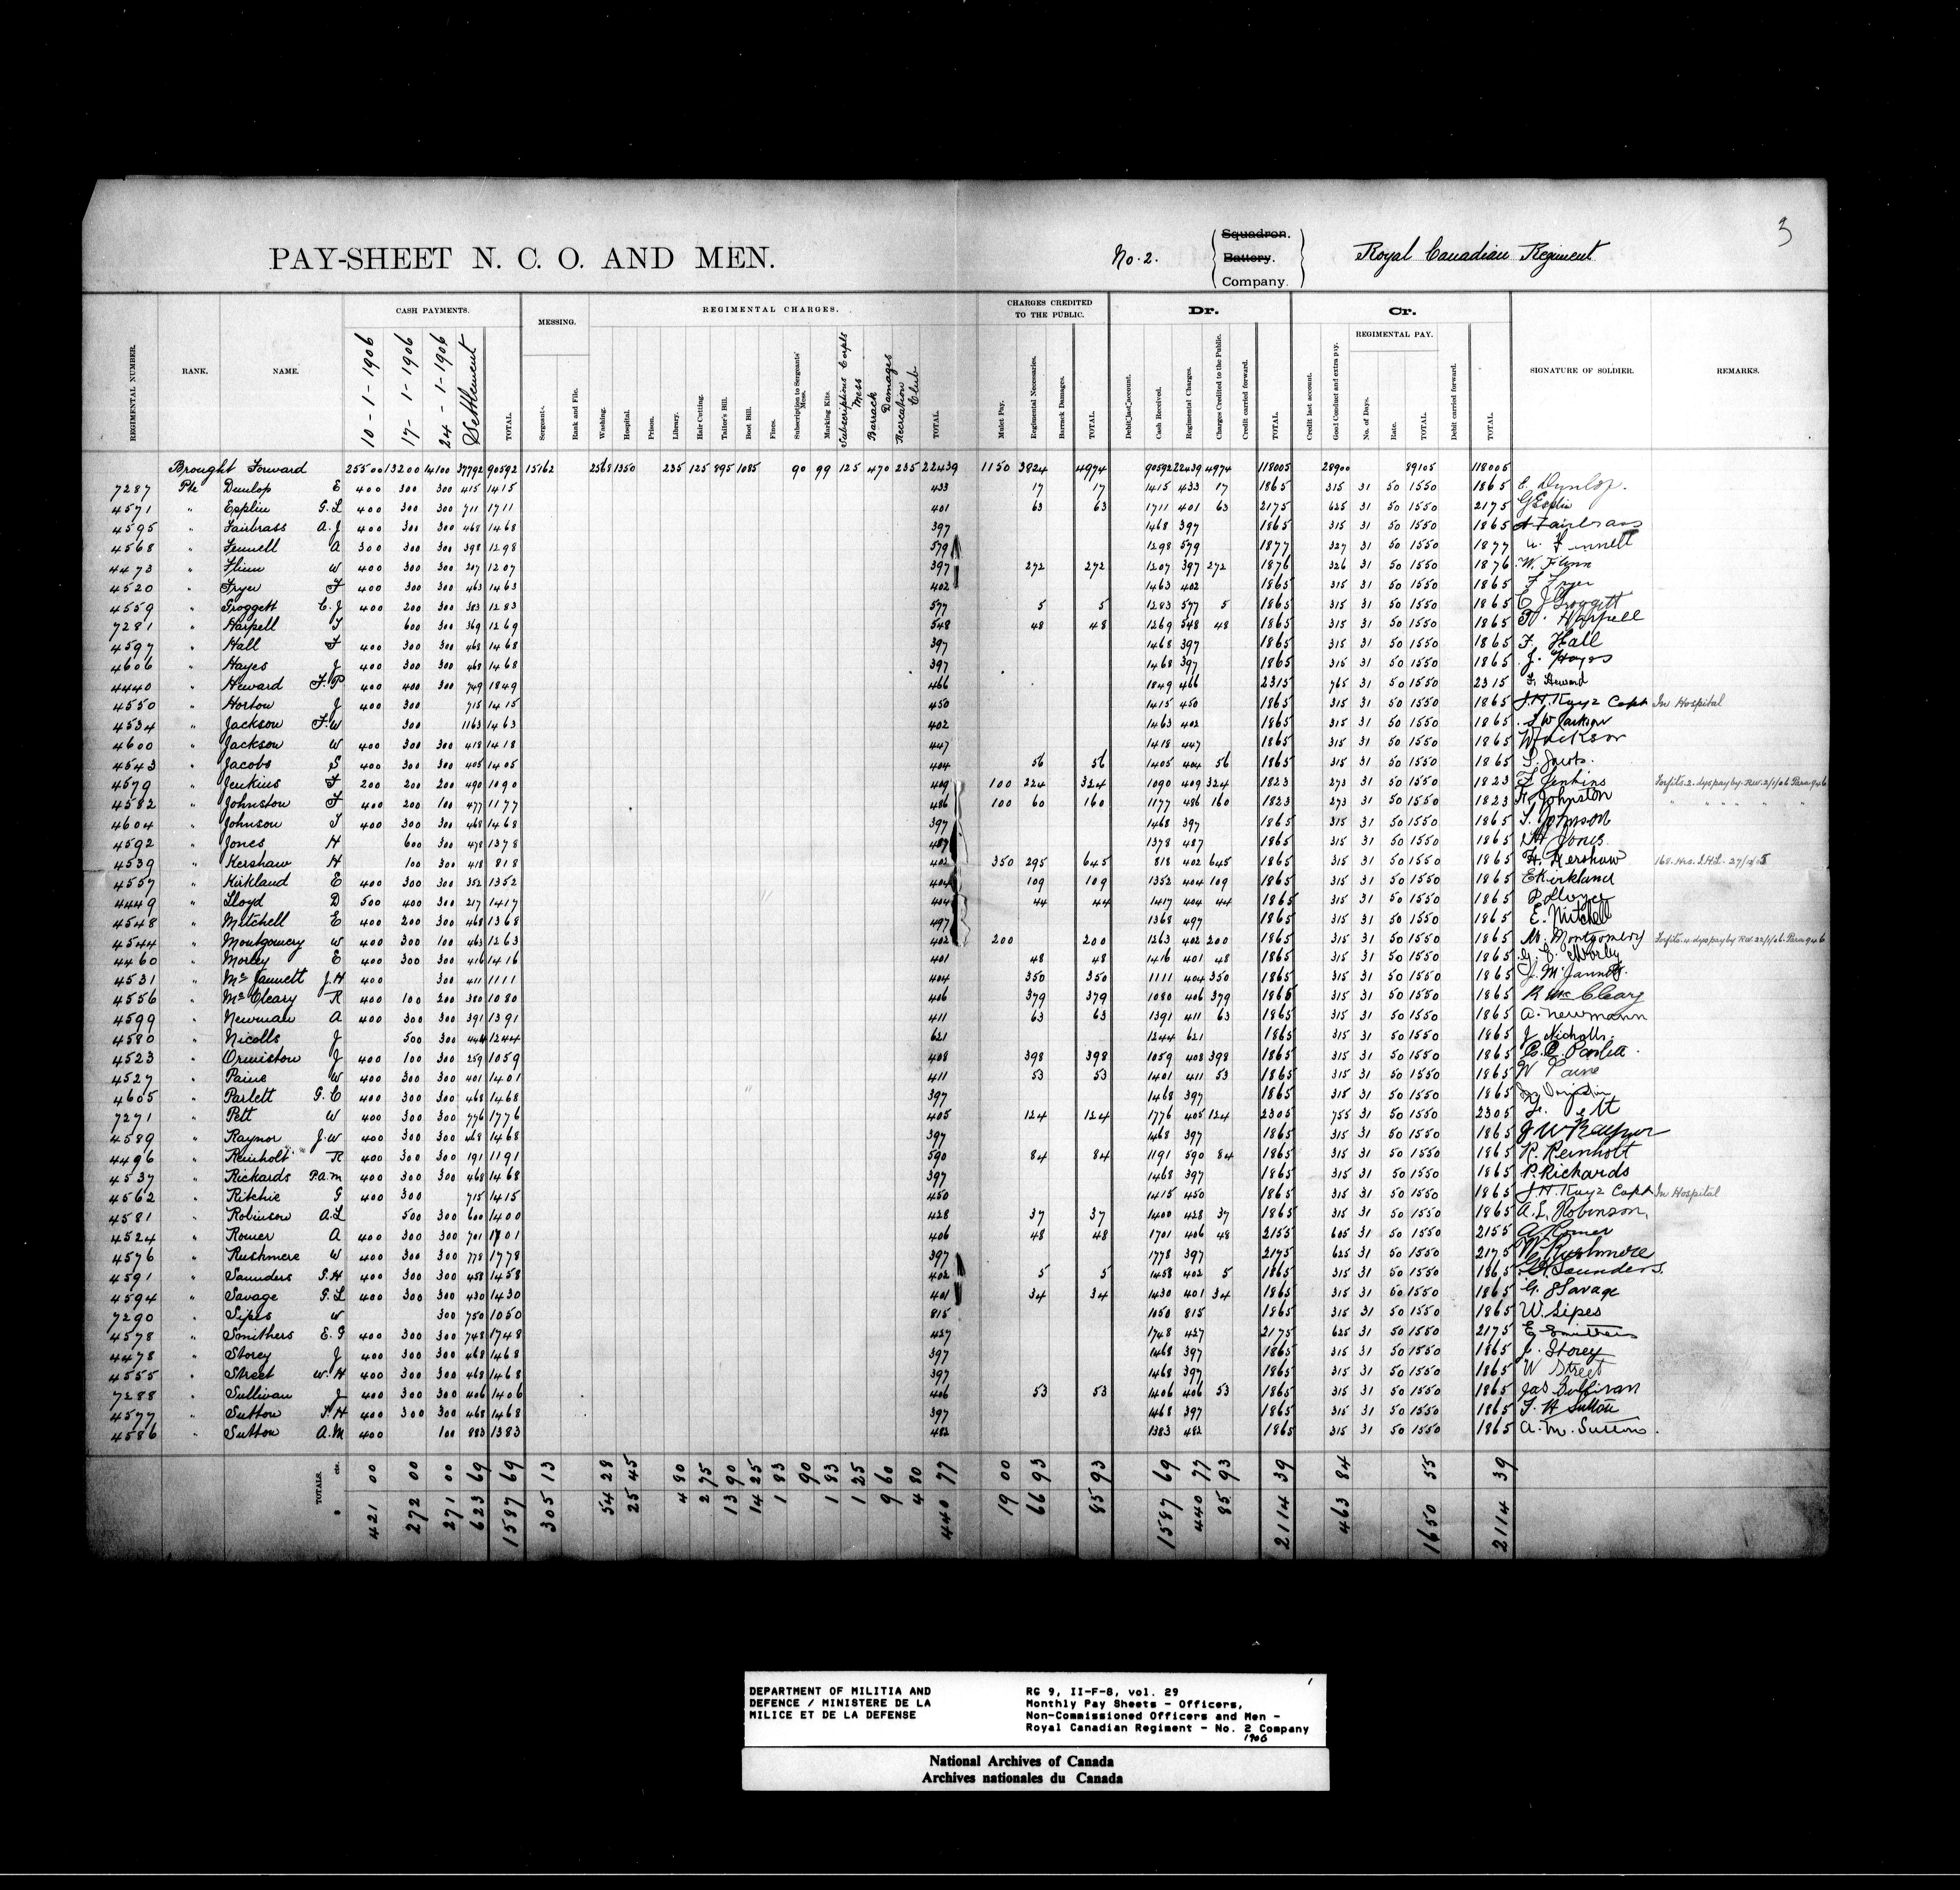 3
PAY-SHEET N. C. O. AND MEN.
No. 2. Squadron. Battery. Company. Royal Canadian Regiment
CASH PAYMENTS. MESSING. REGIMENTAL CHARGES. CHARGES CREDITED TO THE PUBLIC. Dr. Cr. REGIMENTAL PAY.
REGIMENTAL NUMBER. RANK. NAME. 10-1-1906 17-1-1906 24-1-1906 Settlement TOTAL. Sergeants. Rank and File. Washing. Hospital. Prison. Library. Hair Cutting. Tailor's Bill. Boot Bill. Fines. Subscription to Sergeants' Mess. Marking Kits. Subscriptions Corpls Mess Barrack Damages Recreation Club TOTAL Mulct Pay. Regimental Necessaries. Barrack Damages. TOTAL Debit last account. Cash Received. Regimental Charges. Charges Credited to the Public. Credit carried forward. TOTAL Credit last account. Good Conduct and extra pay. No. of Days. Rate. TOTAL Debit carried forward. TOTAL SIGNATURE OF SOLDIER. REMARKS.
Brought Forward 25500 13200 14100 37792 90592 15162 2568 1350 235 125 895 1085 90 99 125 470 235 22439 1150 3824 4974 90592 22439 4974 118005 28900 89105 118005
7287 Pte Dunlop E 400 300 300 415 1415 433 17 17 1415 433 17 1865 315 31 50 1550 1865 E. Dunlop.
4571 " Epplin G.L 400 300 300 711 1711 401 63 63 1711 401 63 2175 625 31 50 1550 2175
4595 " Fairbrass A.J 400 300 300 468 1468 397 1468 397 1865 315 31 50 1550 1865 A Fairbrass
4568 " Fennell A 300 300 300 398 1298 579 1298 579 1877 327 31 50 1550 1877 A. Fennell
4473 " Flinn W 400 300 300 207 1207 397 272 272 1207 397 272 1876 326 31 50 1550 1876 W. Flinn
4520 " Fryer F 400 300 300 463 1463 402 1463 402 1865 315 31 50 1550 1865 F Fryer
4559 " Groggett C.J 400 200 300 383 1283 577 5 5 1283 577 5 1865 315 31 50 1550 1865 C J Groggett
7281 " Harpell T 600 300 369 1269 548 48 48 1269 548 48 1865 315 31 50 1550 1865 Harpell
4597 " Hall F 400 300 300 468 1468 397 1468 397 1865 315 31 50 1550 1865 F. Hall
4606 " Hayes J 400 300 300 468 1468 397 1468 397 1865 315 31 50 1550 1865 J. Hayes
4440 " Heward F.P 400 400 300 749 1849 466 1849 466 2315 765 31 50 1550 2315 F. Heward
4550 " Horton J 400 300 715 1415 450 1415 450 1865 315 31 50 1550 1865 J.H. Kaye Capt In Hospital
4534 " Jackson F.W 300 1163 1463 402 1463 402 1865 315 31 50 1550 1865 F W Jackson
4600 " Jackson W 400 300 300 418 1418 447 1418 447 1865 315 31 50 1550 1865 W Jackson
4543 " Jacobs S 400 300 300 405 1405 404 56 56 1405 404 56 1865 315 31 50 1550 1865 S. Jacobs.
4579 " Jenkins F 200 200 200 490 1090 409 100 224 324 1090 409 324 1823 273 31 50 1550 1823 F Jenkins Forfits. 2. dys pay by. Rw. 2/1/06 Para 946
4582 " Johnston F 400 200 100 477 1177 486 100 60 160 1177 486 160 1823 273 31 50 1550 1823 F. Johnston " " " " " "
4604 " Johnson T 400 300 300 468 1468 397 1468 397 1865 315 31 50 1550 1865 T. Johnson
4592 " Jones H 600 300 478 1378 487 1378 487 1865 315 31 50 1550 1865 H Jones
4539 " Kershaw H 100 300 418 818 402 350 295 645 818 402 645 1865 315 31 50 1550 1865 H. Kershaw 168. Hrs. I.H.L.
4557 " Kirkland E 400 300 300 352 1352 404 109 109 1352 404 109 1865 315 31 50 1550 1865 E Kirkland
4449 " Lloyd D 500 400 300 217 1417 404 44 44 1417 404 44 1865 315 31 50 1550 1865
4548 " Mitchell E 400 200 300 468 1368 497 1368 497 1865 315 31 50 1550 1865 E. Mitchell
4544 " Montgomery W 400 300 100 463 1263 402 200 200 1263 402 200 1865 315 31 50 1550 1865 W. Montgomery Forfits. 4. dys pay by Rw. 22/1/06. Para 946
4460 " Morley E 400 300 300 416 1416 401 48 48 1416 401 48 1865 315 31 50 1550 1865
4531 " McJannett J.H 400 300 411 1111 404 350 350 1111 404 350 1865 315 31 50 1550 1865 J. McJannett.
4556 " McCleary R 400 100 200 380 1080 406 379 379 1080 406 379 1865 315 31 50 1550 1865 R Mc Cleary
4599 " Newman A 400 300 300 391 1391 411 63 63 1391 411 63 1865 315 31 50 1550 1865 A. Newmann
4580 " Nicolls J 500 300 444 1244 621 1244 621 1865 315 31 50 1550 1865 J Nicholls.
4523 " Ormiston J 400 100 300 259 1059 408 398 398 1059 408 398 1865 315 31 50 1550 1865
4527 " Paine W 400 300 300 401 1401 411 53 53 1401 411 53 1865 315 31 50 1550 1865 W Paine
4605 " Parlett G.C 400 300 300 468 1468 397 1468 397 1865 315 31 50 1550 1865
7271 " Pett W 400 300 300 776 1776 405 124 124 1776 405 124 2305 755 31 50 1550 2305
4589 " Raynor J.W 400 300 300 468 1468 397 1468 397 1865 315 31 50 1550 1865 J W Raynor
4496 " Reinholt R 400 300 300 191 1191 590 84 84 1191 590 84 1865 315 31 50 1550 1865 R. Reinholt
4537 " Rickards P.A.M 400 300 300 468 1468 397 1468 397 1865 315 31 50 1550 1865 P. Rickards
4562 " Ritchie G 400 300 715 1415 450 1415 450 1865 315 31 50 1550 1865 J.H. Kaye Capt In Hospital
4581 " Robinson A.L 500 300 600 1400 428 37 37 1400 428 37 1865 315 31 50 1550 1865 A. L. Robinson.
4524 " Romer A 400 300 300 701 1701 406 48 48 1701 406 48 2155 605 31 50 1550 2155 A Romer
4576 " Rushmere W 400 300 300 778 1778 397 1778 397 2175 625 31 50 1550 2175 W. Rushmere
4591 " Saunders G.H 400 300 300 458 1458 402 5 5 1458 402 5 1865 315 31 50 1550 1865 G.H. Saunders.
4594 " Savage G.L 400 300 300 430 1430 401 34 34 1430 401 34 1865 315 31 50 1550 1865 G. L Savage
7290 " Sipes W 300 750 1050 815 1050 815 1865 315 31 50 1550 1865 W. Sipes
4578 " Smithers E.G 400 300 300 748 1748 427 1748 427 2175 625 31 50 1550 2175 E Smithers
4478 " Storey J 400 300 300 468 1468 397 1468 397 1865 315 31 50 1550 1865 J. Storey
4555 " Street W.H 400 300 300 468 1468 397 1468 397 1865 315 31 50 1550 1865 W Street
7288 " Sullivan J 400 300 300 406 1406 406 53 53 1406 406 53 1865 315 31 50 1550 1865 Jas Sullivan
4577 " Sutton F.H 400 300 300 468 1468 397 1468 397 1865 315 31 50 1550 1865 F. H Sutton
4586 " Sutton A.M 400 100 883 1383 482 1383 482 1865 315 31 50 1550 1865 A. M. Sutton.
TOTALS. $ cts. 421 00 272 00 271 00 623 69 1587 69 305 13 54 28 25 45 4 80 2 75 13 90 14 25 1 83 90 1 83 1 25 9 60 4 80 440 77 19 00 66 93 85 93 1587 69 440 77 85 93 2114 39 463 84 1650 55 2114 39
DEPARTMENT OF MILITIA AND
DEFENCE / MINISTERE DE LA
MILICE ET DE LA DEFENSE
RG 9, II-F-8, vol. 29
Monthly Pay Sheets - Officers,
Non-Commissioned Officers and Men -
Royal Canadian Regiment - No. 2 Company
1906
National Archives of Canada
Archives nationales du Canada